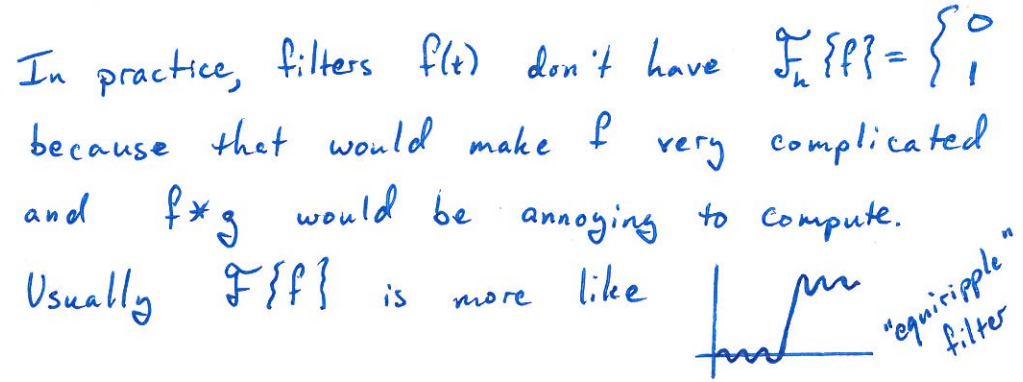 In practice, filters f(t) don't have ℱₕ{f} = { 0 1
because that would make f very complicated
and f*g would be annoying to compute.
Usually ℱ{f} is more like
"equiripple"
filter